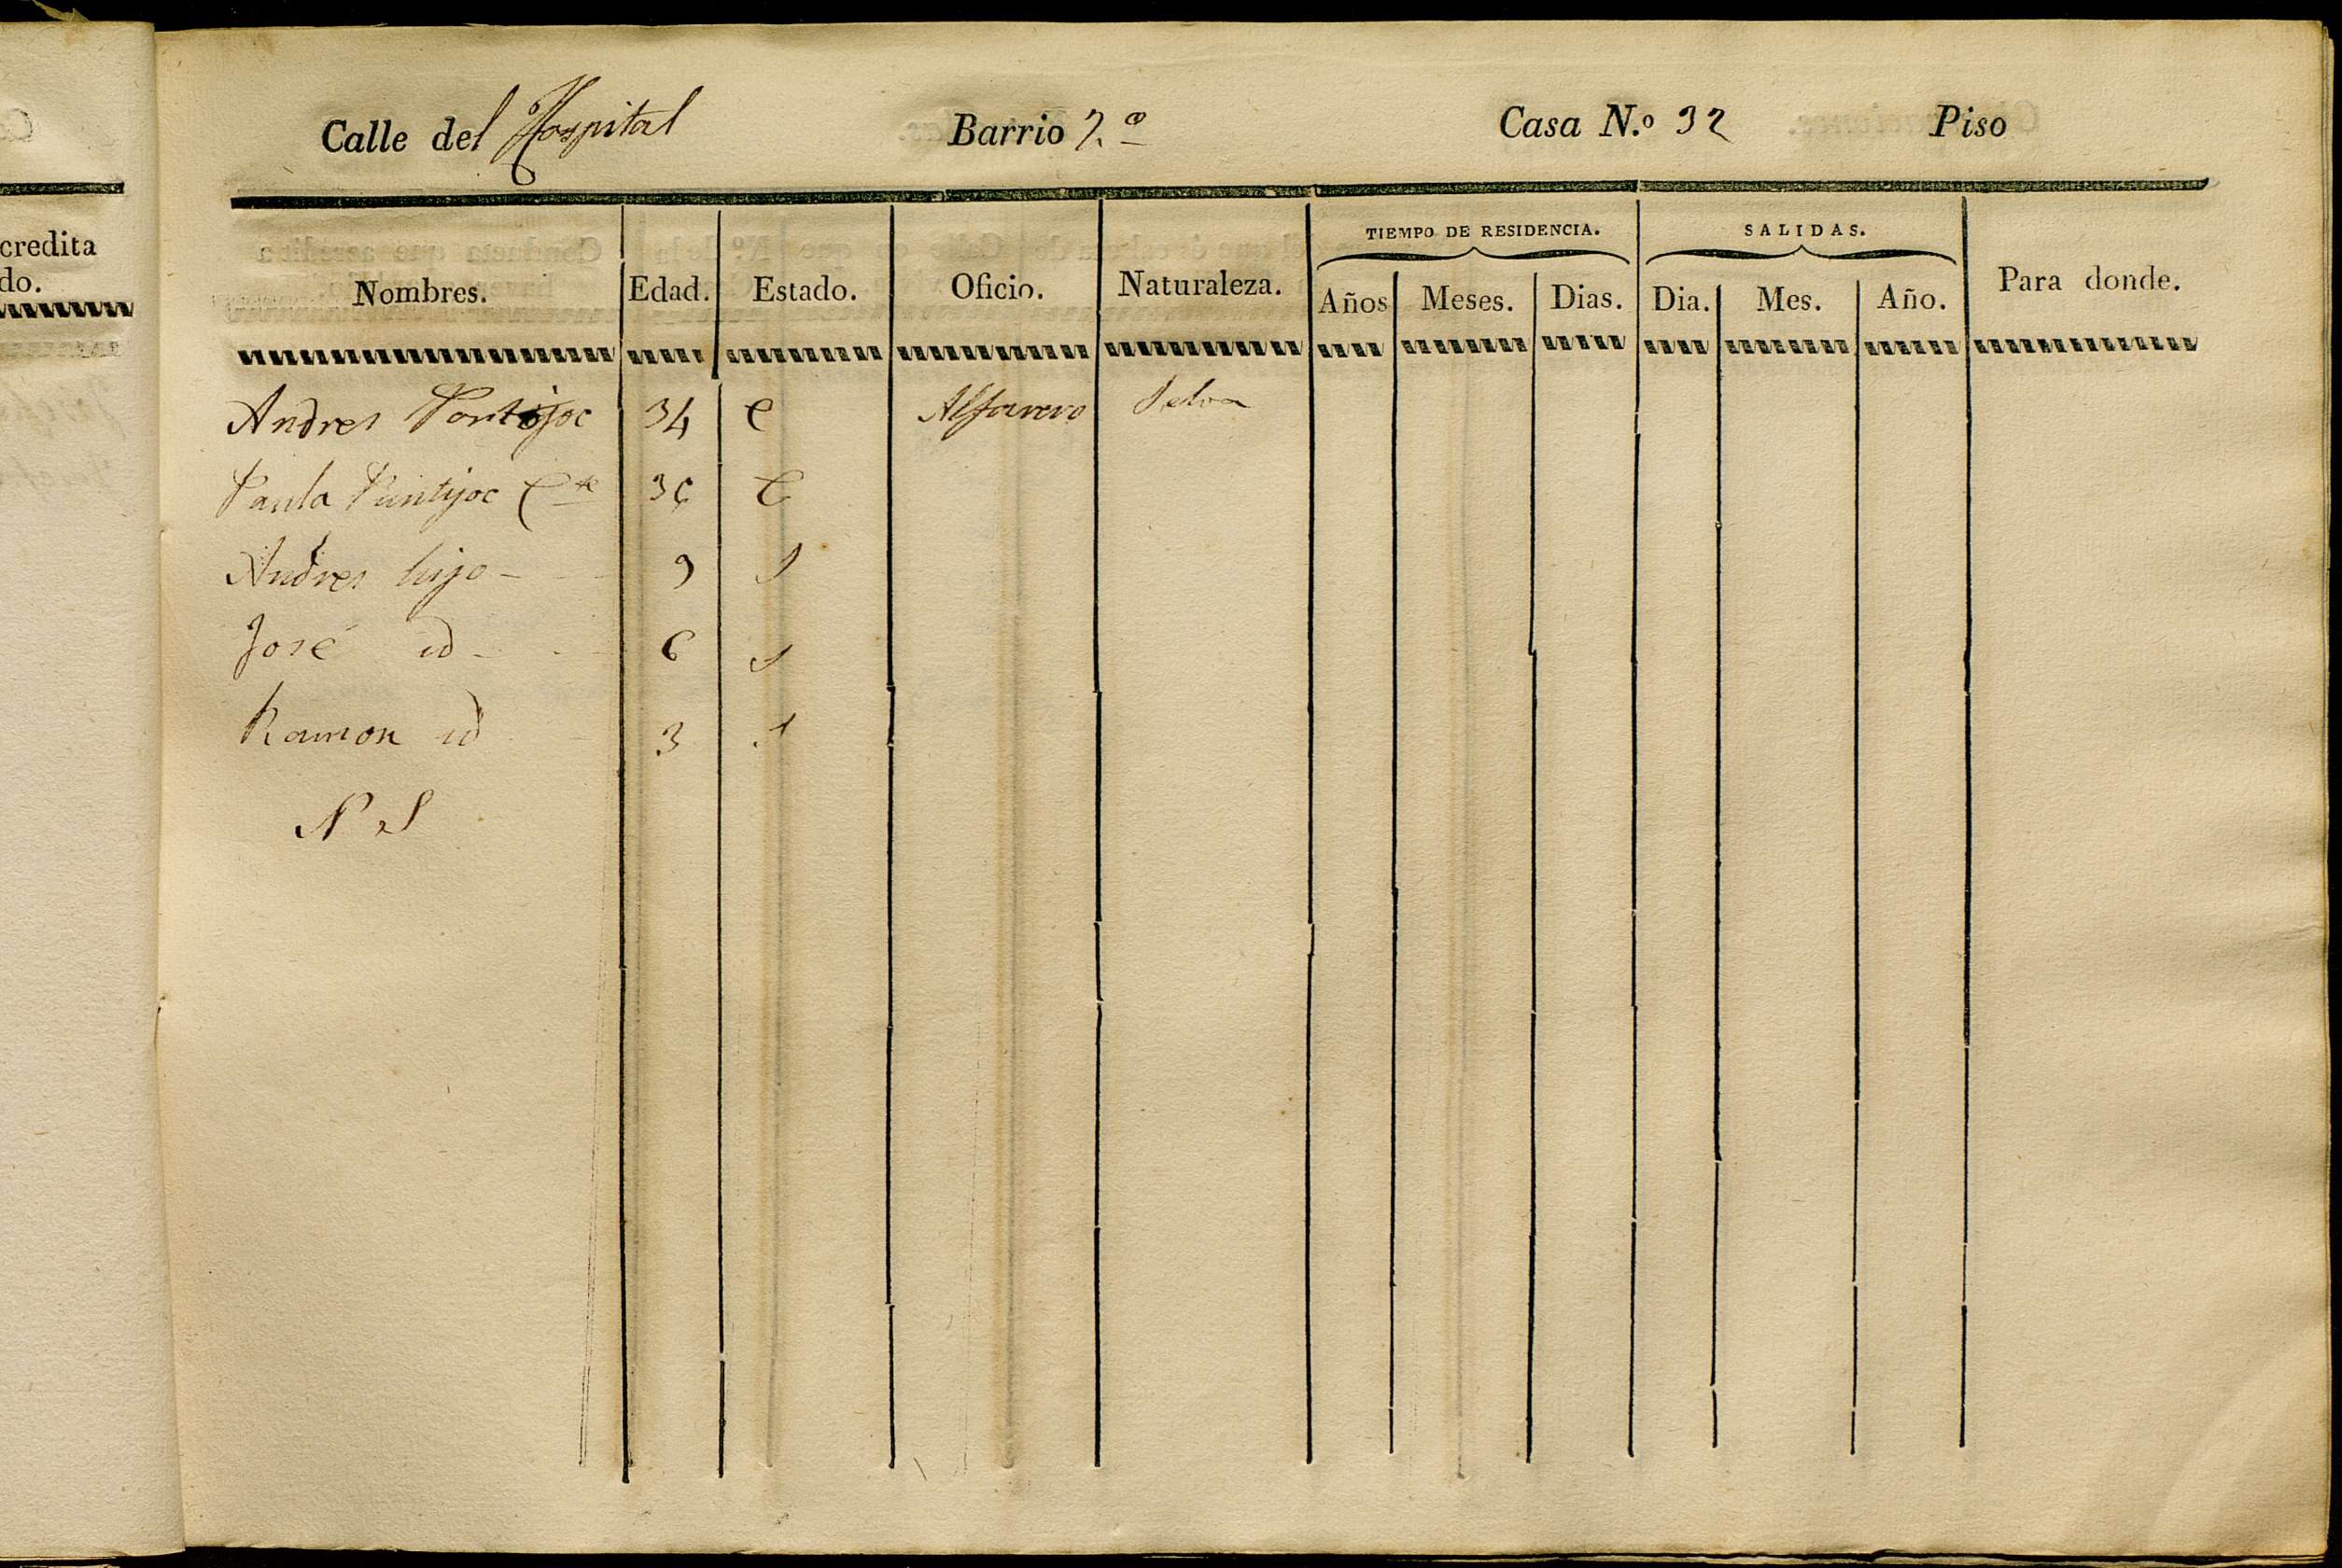 Calle del Hospital Barrio 2.º Casa N.º 32 Piso
credita
do.
TIEMPO DE RESIDENCIA. SALIDAS.
Nombres. Edad. Estado. Oficio. Naturaleza. Años Meses. Dias. Dia. Mes. Año. Para donde.
Andres 34 C Alfarero Selva
Paula Puntijoc 35 C
Andres hijo - 9 S
José id - 6 S
Ramon id 3 S
N S